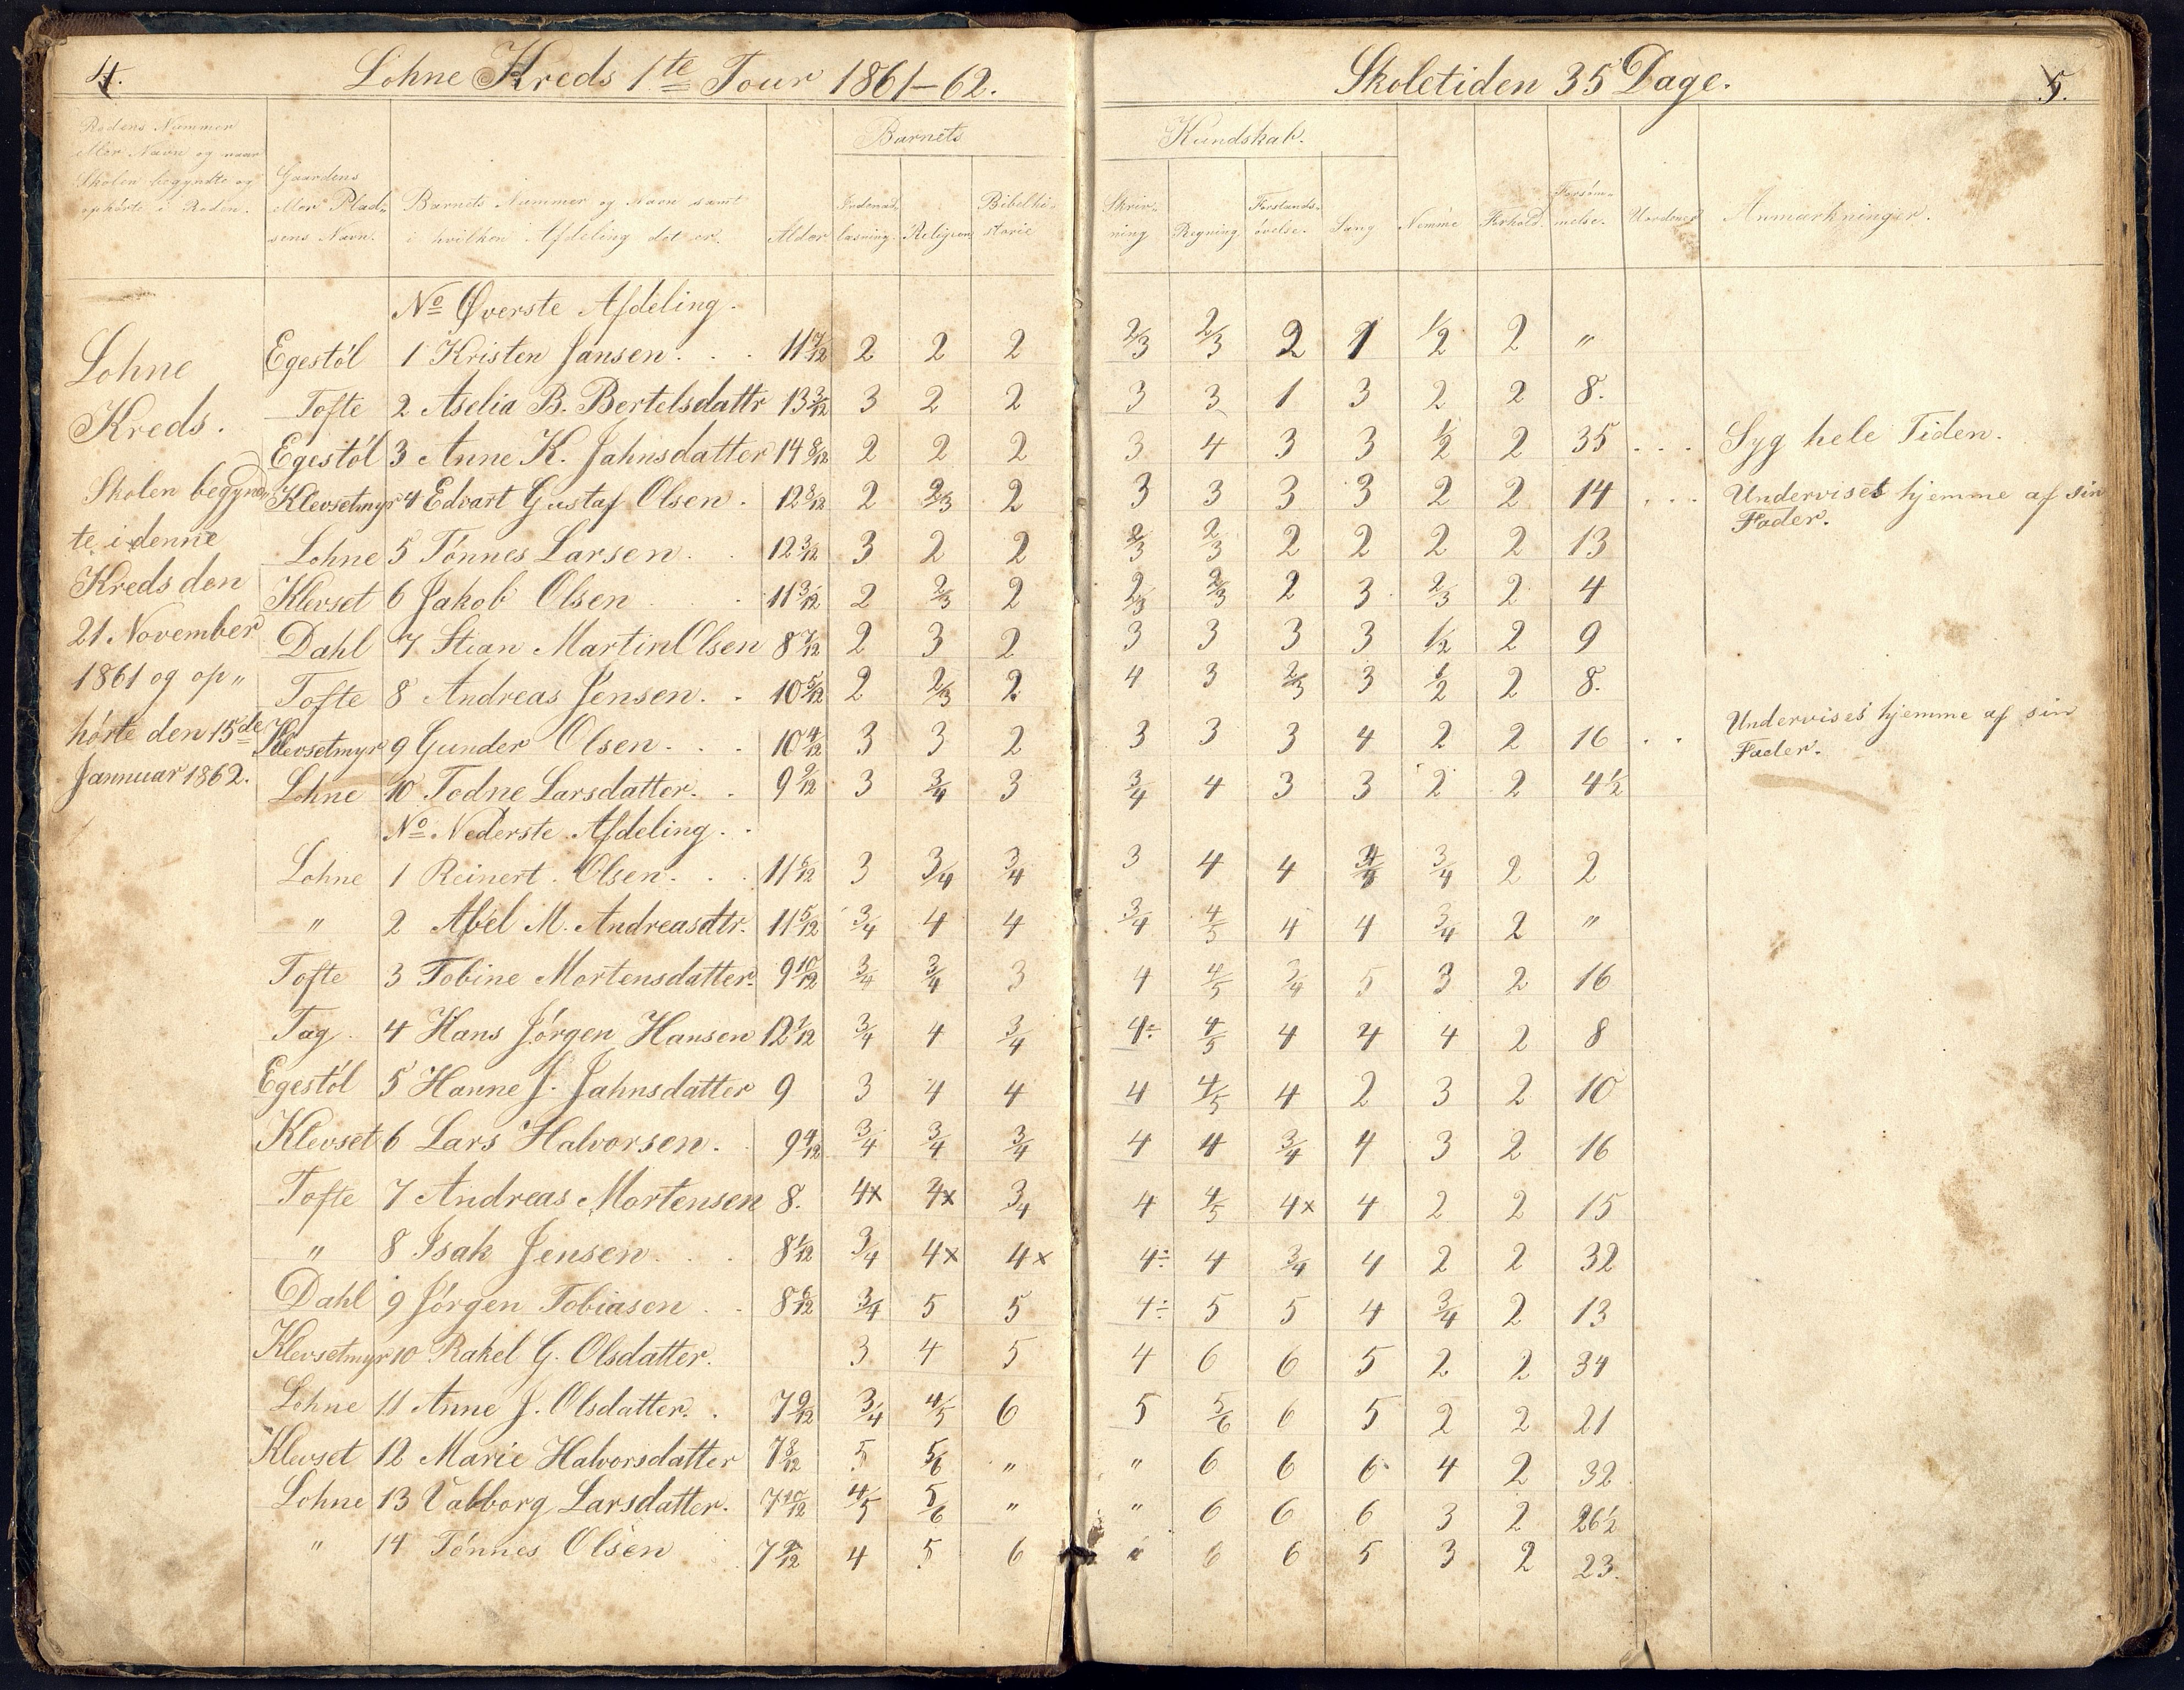 4.
Lohne Kreds 1te Tour 1861–62.
Skoletiden 35 Dage.
5.
Rodens Nummer eller Navn og naar Skolen begyndte og ophørte i Roden.
Gaardens eller Pladsens Navn.
Barnets Nummer og Navn samt i hvilken Afdeling det er.
Alder
Barnets Kundskab.
Indenadlæsning.
Religion
Bibelhistorie
Skrivning
Regning
Forstandsøvelse.
Sang
Nemme
Forhold.
Forsømmelse.
Uordener
Anmærkninger.
Lohne
Kreds.
Skolen begynd
te i denne
Kreds den
21 November
1861 og op„
hørte den 15de
Jannuar 1862.
No Øverste Afdeling.
Egestøl 1 Kristen Jansen. 11 7/12 2 2 2 2/3 2/3 2 1 1/2 2 „
Tofte 2 Aselia B. Bertelsdattr 13 3/12 3 2 2 3 3 1 3 2 2 8.
Egestøl 3 Anne K. Jahnsdatter 14 8/12 2 2 2 3 4 3 3 1/2 2 35 . . . Syg hele Tiden.
Klevsetmyr 4 Edvart Gustaf Olsen. 12 8/12 2 2/3 2 3 3 3 3 2 2 14 . . . Undervises hjemme af sin Fader.
Lohne 5 Tønnes Larsen. 12 3/12 3 2 2 2/3 2/3 2 2 2 2 13
Klevset 6 Jakob Olsen 11 3/12 2 2/3 2 2/3 2/3 2 3 2/3 2 4
Dahl 7 Stian Martin Olsen 8 7/12 2 3 2 3 3 3 3 1/2 2 9
Tofte 8 Andreas Jensen. 10 5/12 2 2/3 2 4 3 2/3 3 1/2 2 8.
Klevsetmyr 9 Gunder Olsen. 10 4/12 3 3 2 3 3 3 4 2 2 16 . . Undervises hjemme af sin Fader.
Lohne 10 Todne Larsdatter. 9 2/12 3 3/4 3 3/4 4 3 3 2 2 4 1/2
No Nederste Afdeling.
Lohne 1 Reinert Olsen. 11 6/12 3 3/4 3/4 3 4 4 3/4 2 2
„ 2 Abel M. Andreasdtr. 11 5/12 3/4 4 4 3/4 4/5 4 4 3/4 2 „
Tofte 3 Tobine Mortensdatter. 9 10/12 3/4 3/4 3 4 4/5 3/4 5 3 2 16
Tag. 4 Hans Jørgen Hansen 12 1/12 3/4 4 3/4 4÷ 4/5 4 4 4 2 8
Egestøl 5 Hanne J. Jahnsdatter 9 3 4 4 4 4/5 4 2 3 2 10
Klevset 6 Lars Halvorsen. 9 4/12 3/4 3/4 3/4 4 4 3/4 4 3 2 16
Tofte 7 Andreas Mortensen 8. 4x 4x 3/4 4 4/5 4x 4 2 2 15
„ 8 Isak Jensen. 8 1/12 3/4 4x 4x 4÷ 4 3/4 4 2 2 32
Dahl 9 Jørgen Tobiasen 8 6/12 3/4 5 5 4÷ 5 5 4 3/4 2 13
Klevsetmyr 10 Rakel G. Olsdatter. 3 4 5 4 6 6 5 2 2 34
Lohne 11 Anne J. Olsdatter. 7 9/12 3/4 4/5 6 5 5/6 6 5 2 2 21
Klevset 12 Marie Halvorsdatter 7 8/12 5 5/6 „ „ 6 6 6 4 2 32
Lohne 13 Valborg Larsdatter. 7 10/12 4/5 5/6 „ „ 6 6 6 3 2 26 1/2
„ 14 Tønnes Olsen 4 5 6 6 6 5 3 2 23.